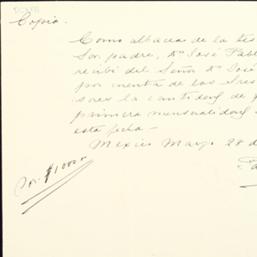 Copia.
Como albacea de la tes
Sor. padre, Dn José Pabl
recibí del Señor Dn José
por cuenta de los Sres
sores la cantidad de
primera mensualidad
esta fecha.—
Mexico Mayo 28 d
Son $1000.00